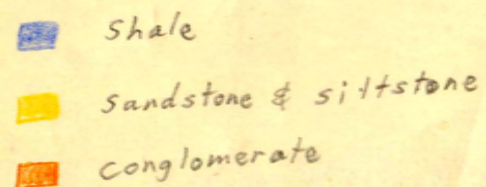 Shale
Sandstone & siltstone
conglomerate